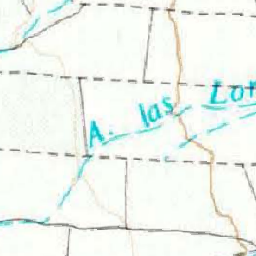 A. las Lor